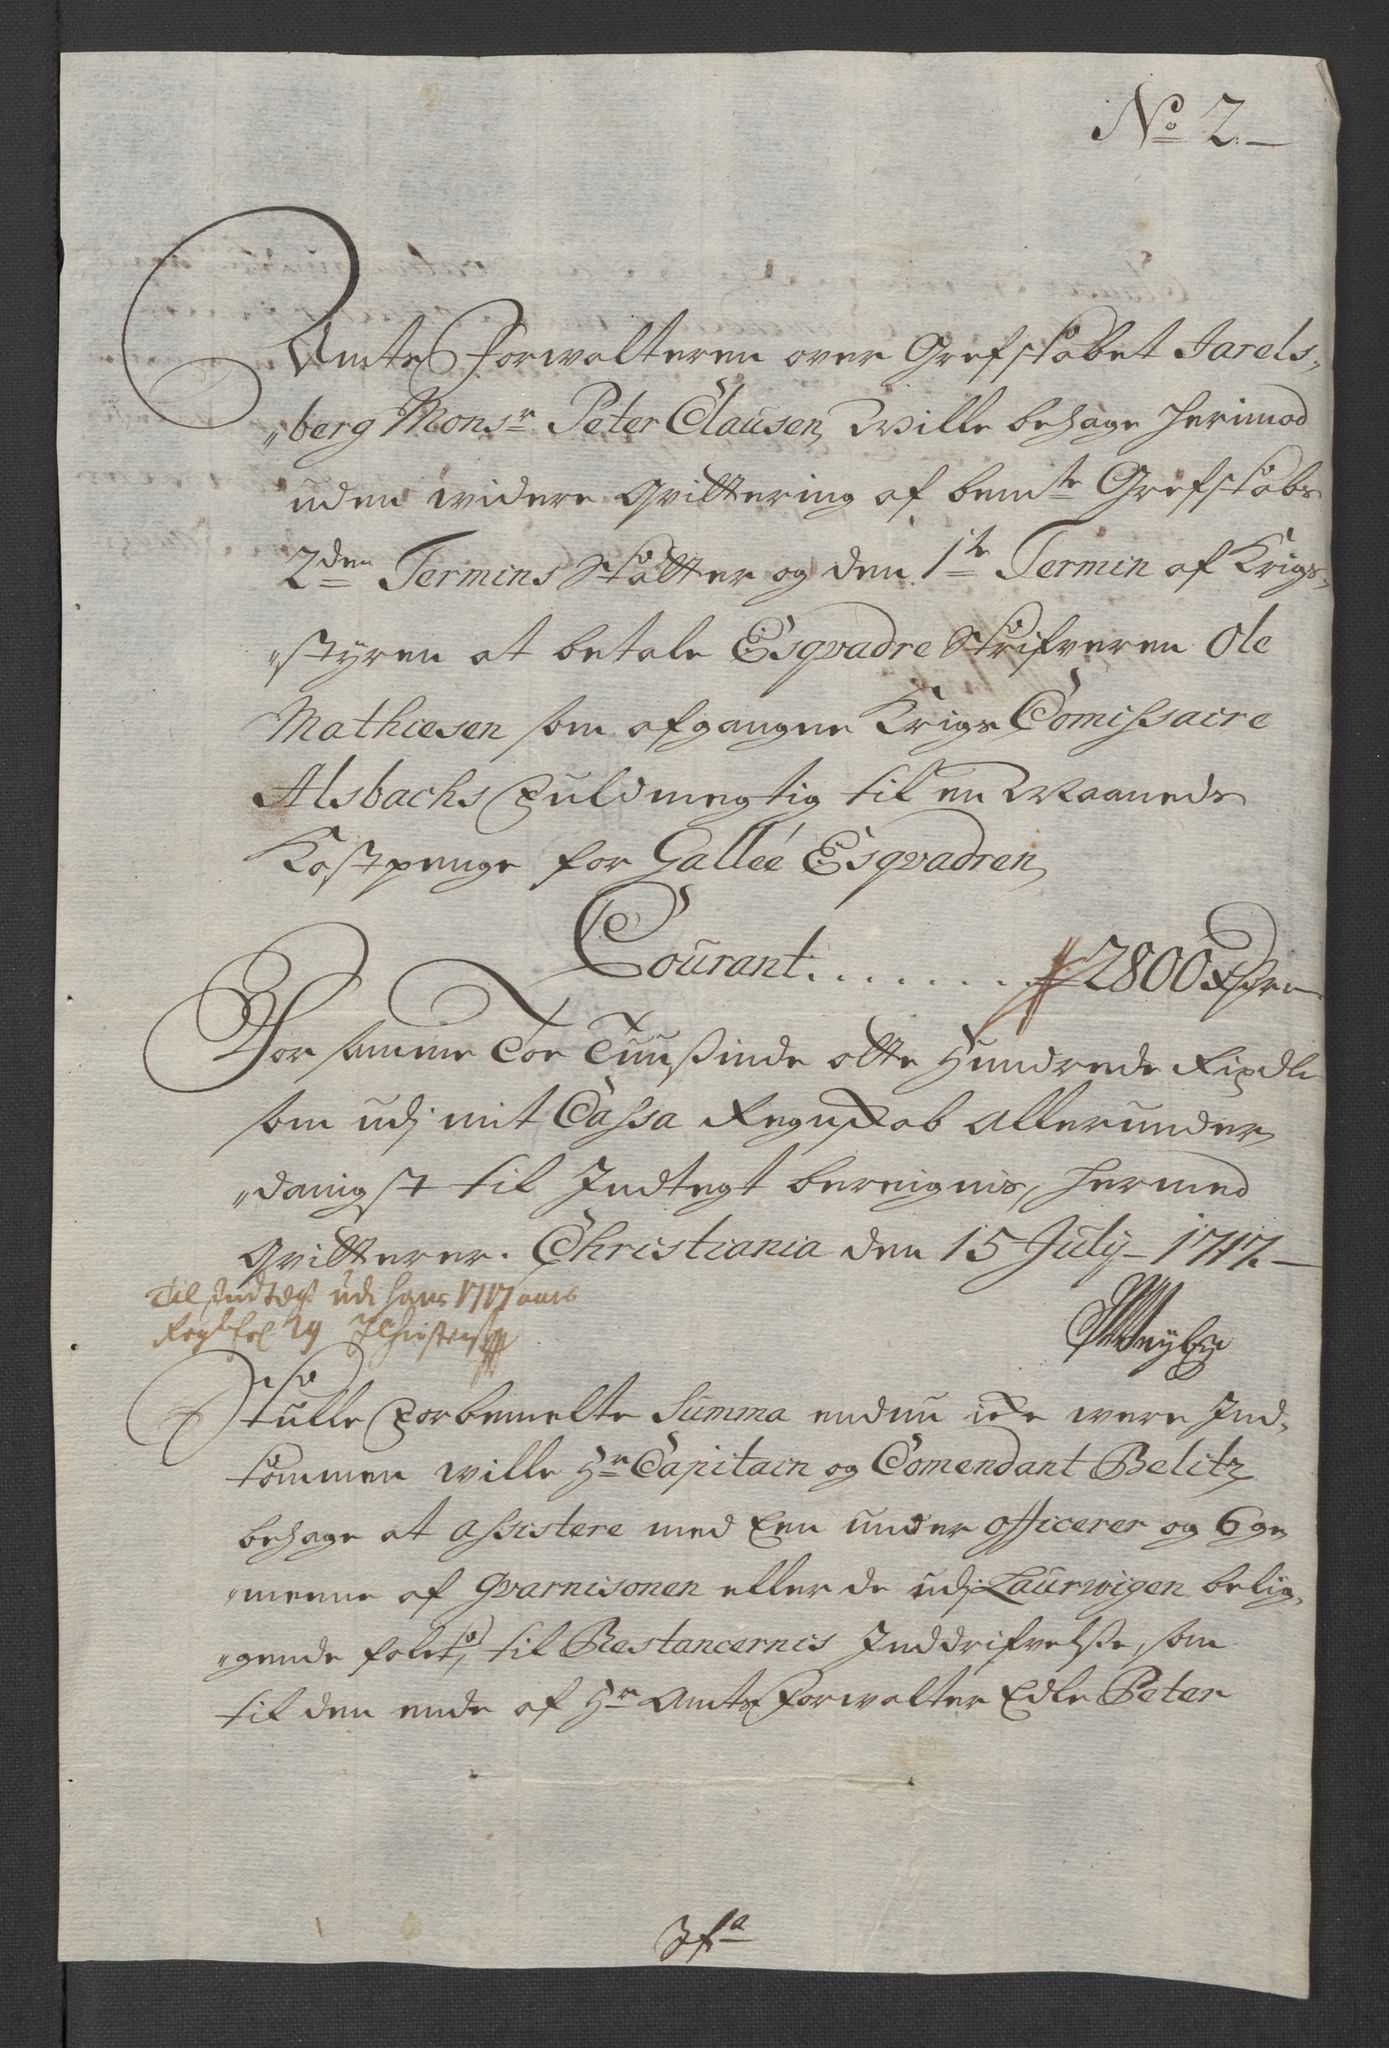 No 2
Amts Forwalteren over Grefskabet Jarels-
berg Monsr Peter Clausen, Wille behage herimod
uden widere qvittering af bemte Grefskabs
2den Termins skatter og den 1te Termin af Krigs-
styren at betale Esqvadre Skrifveren Ole
Mathiesen som afgangne Krigs Comissaire
Alsbachs Fuldmegtig til en Maaneds
Kostpenge for Galleé Esqvadren,
Courant . . . . . . . 2800 Rdr
For samme Toe Tuusinde otte Hundrede Rixdlr
som udj mit Cassa Regnskab allerunder
danigst til Indtegt bereignis, hermed
qvitterer. Christiania den 15 July 1717.
Til Indtægt udi hans 1717 aars
Regsk fol 29
Skulle forbemelte Summa endnu icke were Ind-
kommen wille Hr Capitain og Comendant Belitz
behage at assistere med Een under officerer og 6 ge
meene af Gvarnisonen eller de udj Laurwigen belig-
gende folck, til Restancernis Inddrifvelse, som
til den ende af Hr Amts Forwalter Edle Peter